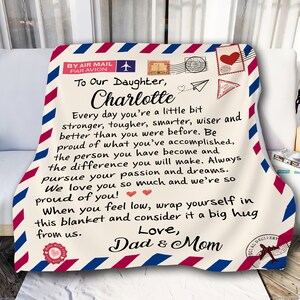 BY AIR MAIL
PAR AVION
To Our Daughter,
Charlotte
Every day you're a little bit
stronger, tougher, smarter, wiser and
better than you were before. Be
proud of what you've accomplished,
the person you have become and
the difference you will make. Always
pursue your passion and dreams.
We love you so much and we're so
proud of you!
When you feel low, wrap yourself in
this blanket and consider it a big hug
from us.
Love,
Dad & Mom